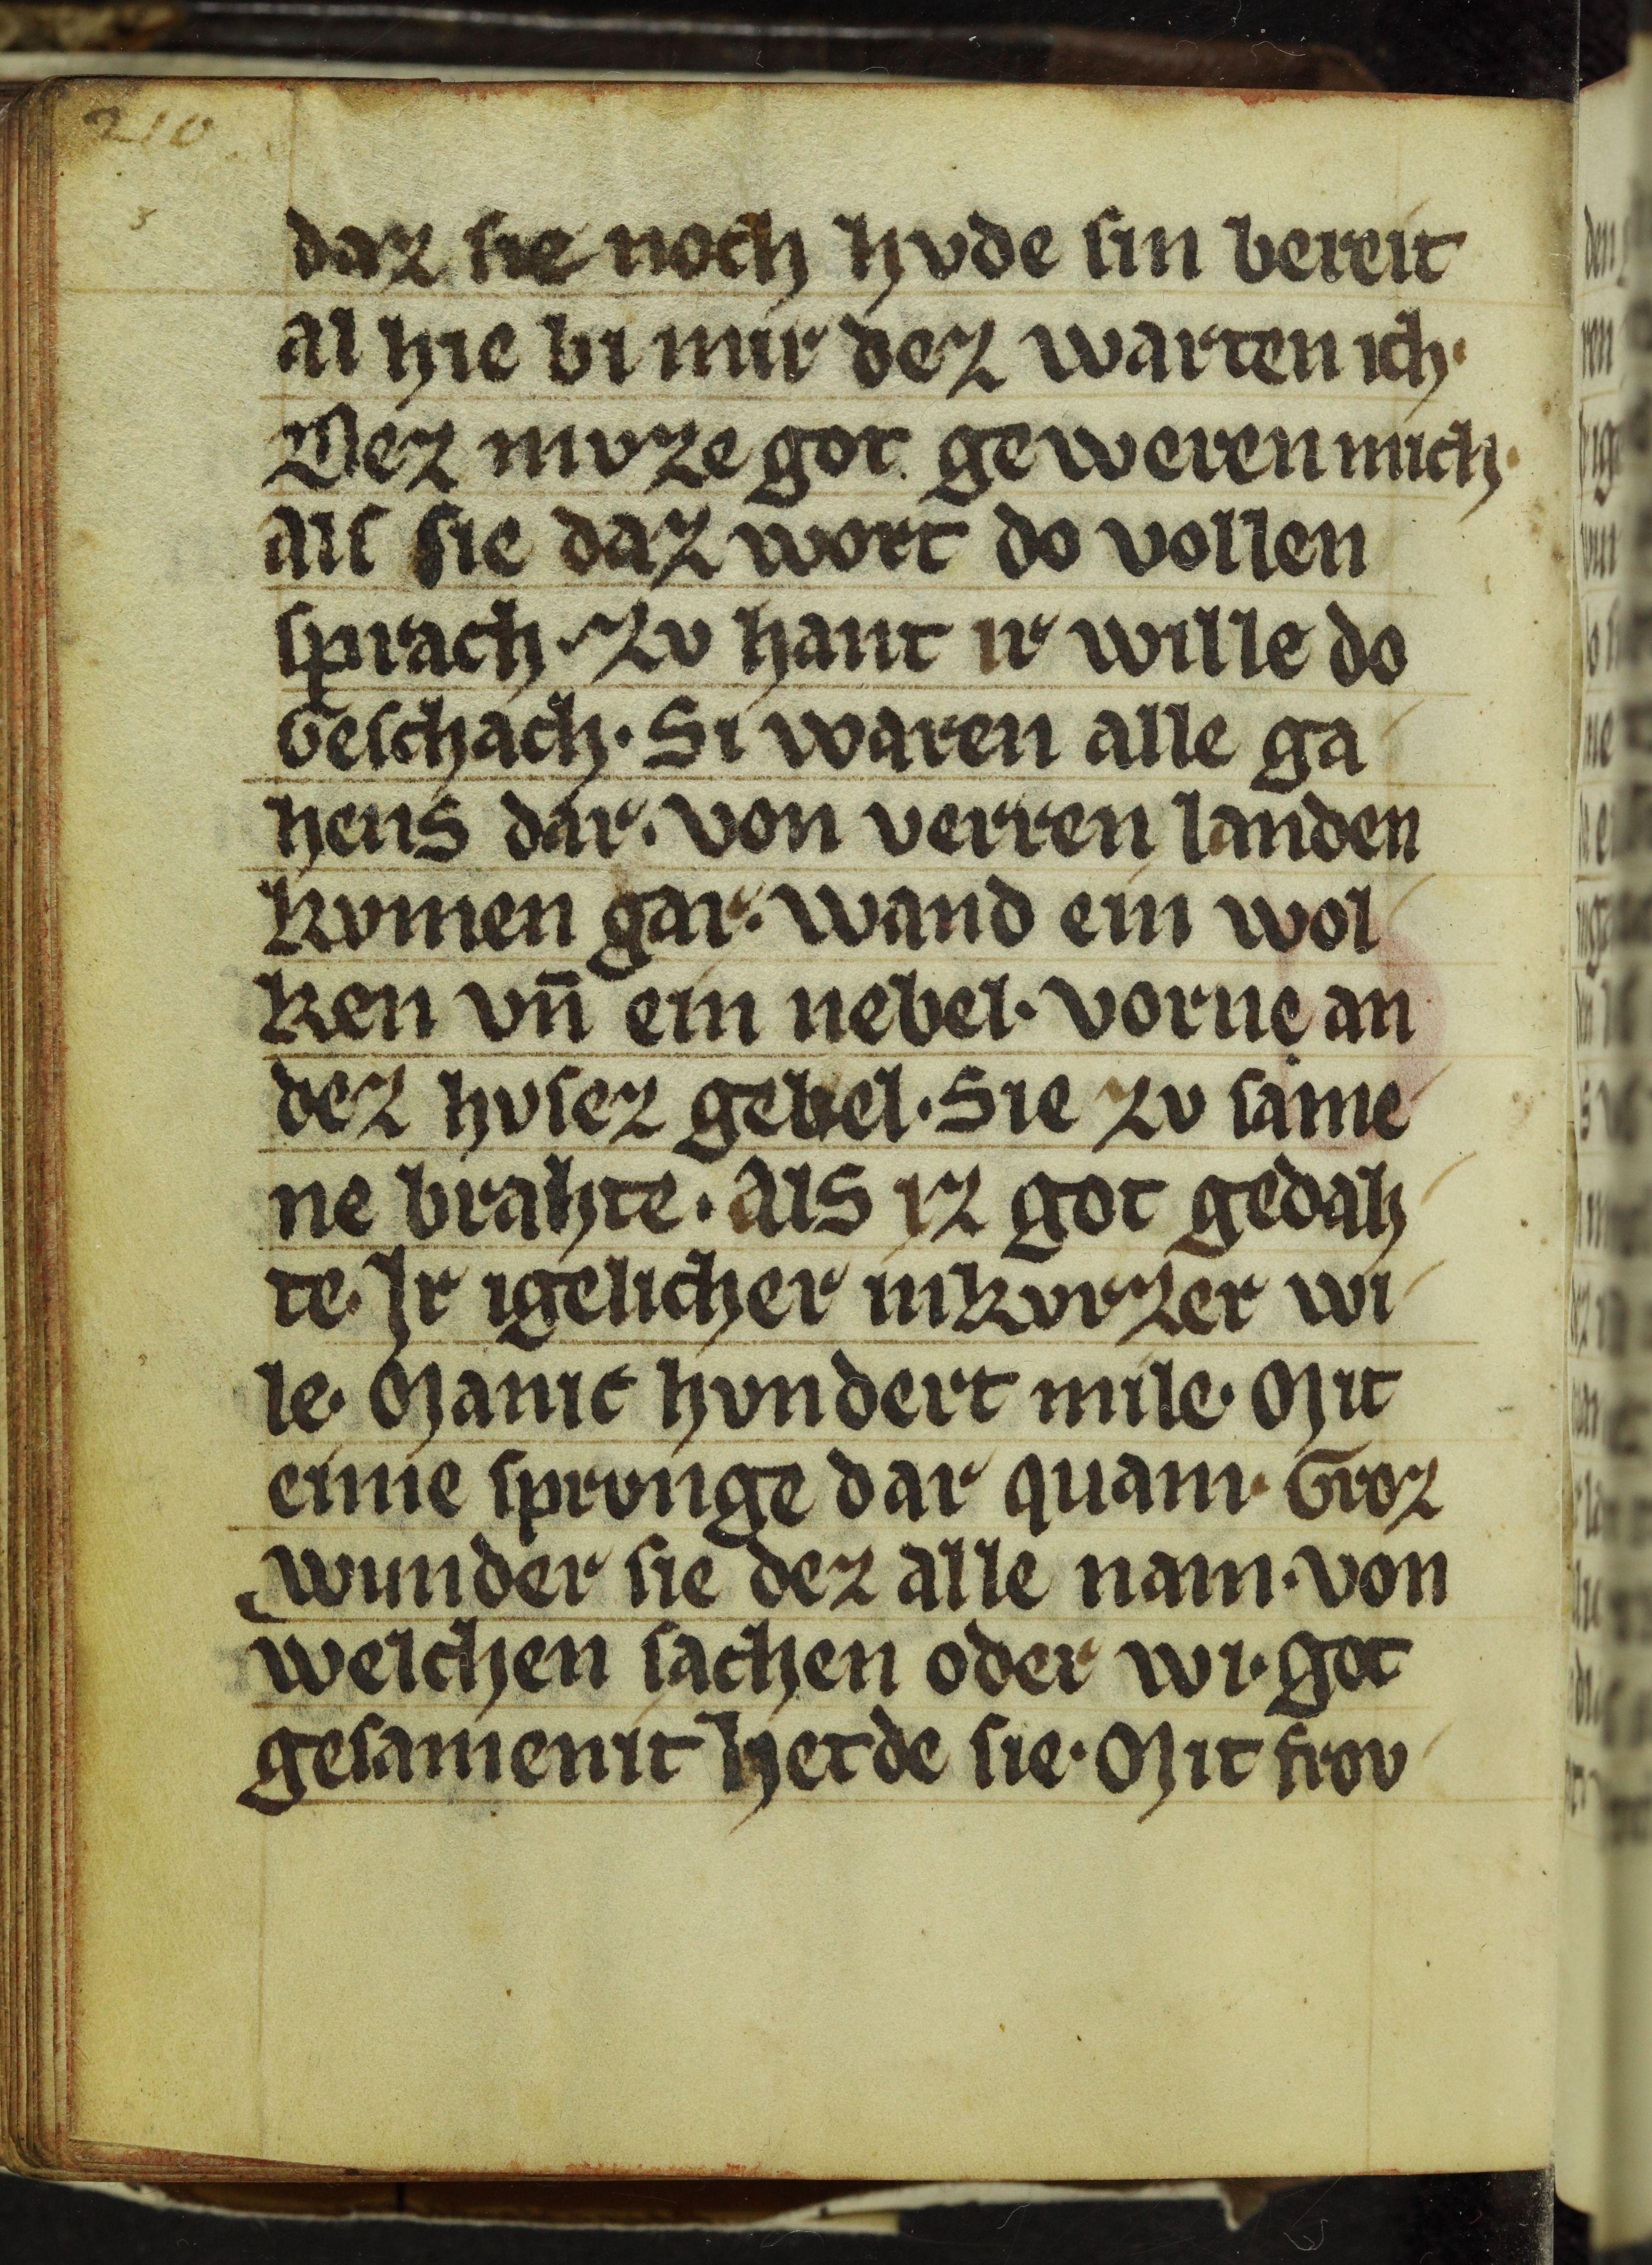 210
daz sie noch hvde sin bereit
al hie bi mir dez warten ich·
Dez mvze got geweren mich·
Als sie daz wort do vollen
sprach· Zv hant ir wille do
Geschach· Si waren alle ga
hens dar· von verren landen
kvmen gar· wand ein wol
ken vn̄ ein nebel· vorne an
dez hvsez gebel· Sie zv same
ne brahte· Als iz got gedah
te· Jr igelicher in kvrzer wi
le· Manic hvndert mile· Mit
eime sprvnge dar quam· Groz
wunder sie dez alle nam· von
welchen sachen oder wi· got
gesamenit hetde sie· Mit frov